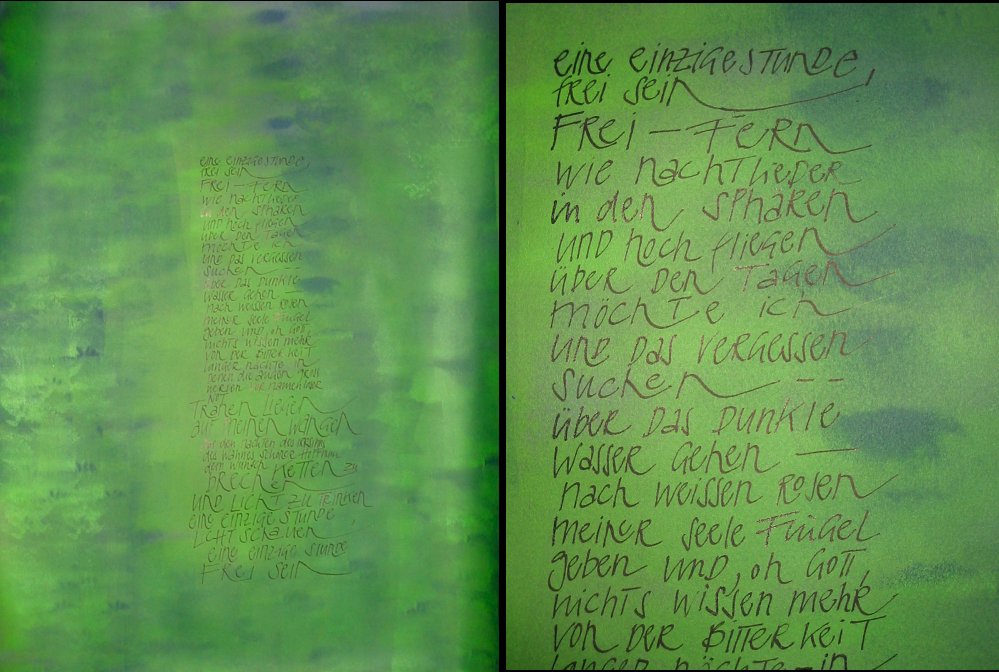 eine einzige STunde,
frei sein
FREI — FERN
wie nachTlieder
in den SPHÄREN
und hoch fliegen
über den Tagen
möchTe ich
und das vergessen
suchen — —
über das dunkle
wasser gehen —
nach weissen rosen
meiner seele Flügel
geben und, oh Gott,
nichts wissen mehr
von der BitterkeiT
langer nächte in
denen die augen
werden vor namenloser
NOT
Tränen liegen
auf meinen wangen
aus den nächten des irrsinns
des wahnes schöner Hoffnung
dem wunsch Ketten zu
brechen
und LichT zu Trinken
eine einzige STunde,
LichT schauen
eine einzige stunde
FREI sein
eine einzige STunde,
frei sein
FREI — FERN
wie nachTlieder
in den SPHÄREN
und hoch fliegen
über den Tagen
möchTe ich
und das vergessen
suchen — —
über das dunkle
wasser gehen —
nach weissen rosen
meiner seele Flügel
geben und, oh Gott,
nichts wissen mehr
von der BitterkeiT
langer nächte — in